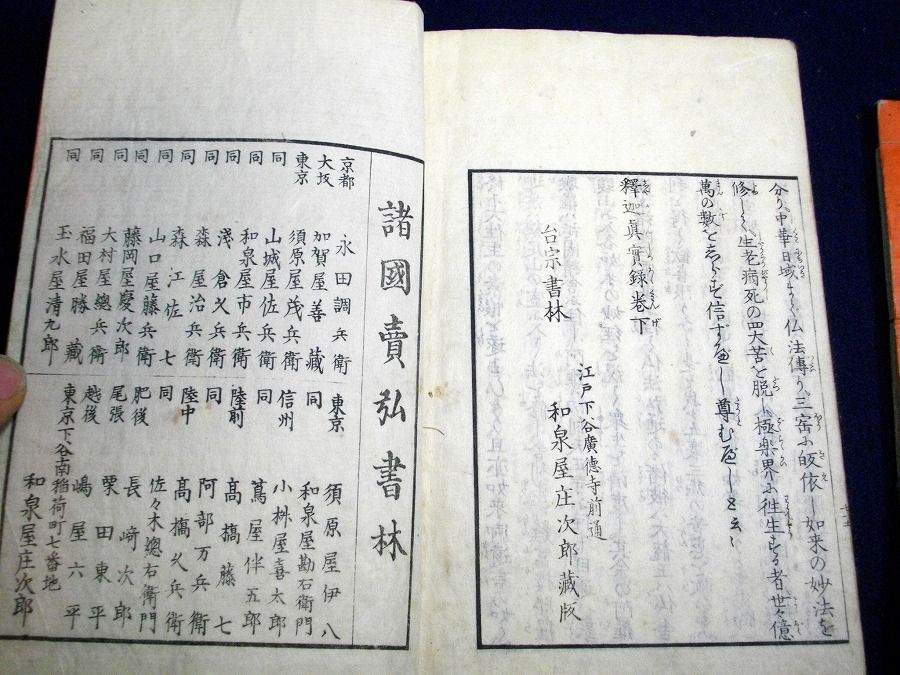 分り中華日域すべて仏法専り三宝に皈依し如来の妙法を
修しら生老病死の四大苦を脱し極楽界に往生する者世々億
萬の数をしらず信ずべし尊むべしと云々
釋迦眞實録巻下
台宗書林
江戸下谷廣徳寺前通
和泉屋庄次郎藏版
諸國賣弘書林
京都 永田調兵衛
大坂 加賀屋善藏
東京 須原屋茂兵衛
同 山城屋佐兵衛
同 和泉屋市兵衛
同 淺倉久兵衛
同 森屋治兵衛
同 森江佐七
同 山口屋藤兵衛
同 藤岡屋慶次郎
同 大村屋總兵衛
同 福田屋勝藏
同 玉水屋清九郎
東京 須原屋伊八
同 和泉屋勘右衛門
信州 小桝屋喜太郎
同 蔦屋伴五郎
陸前 髙橋藤七
同 阿部万兵衛
陸中 髙橋久兵衛
同 佐々木總右衛門
肥後 長崎次郎
尾張 栗田東平
越後 嶋屋六平
東京下谷南稲荷町七番地
和泉屋庄次郎